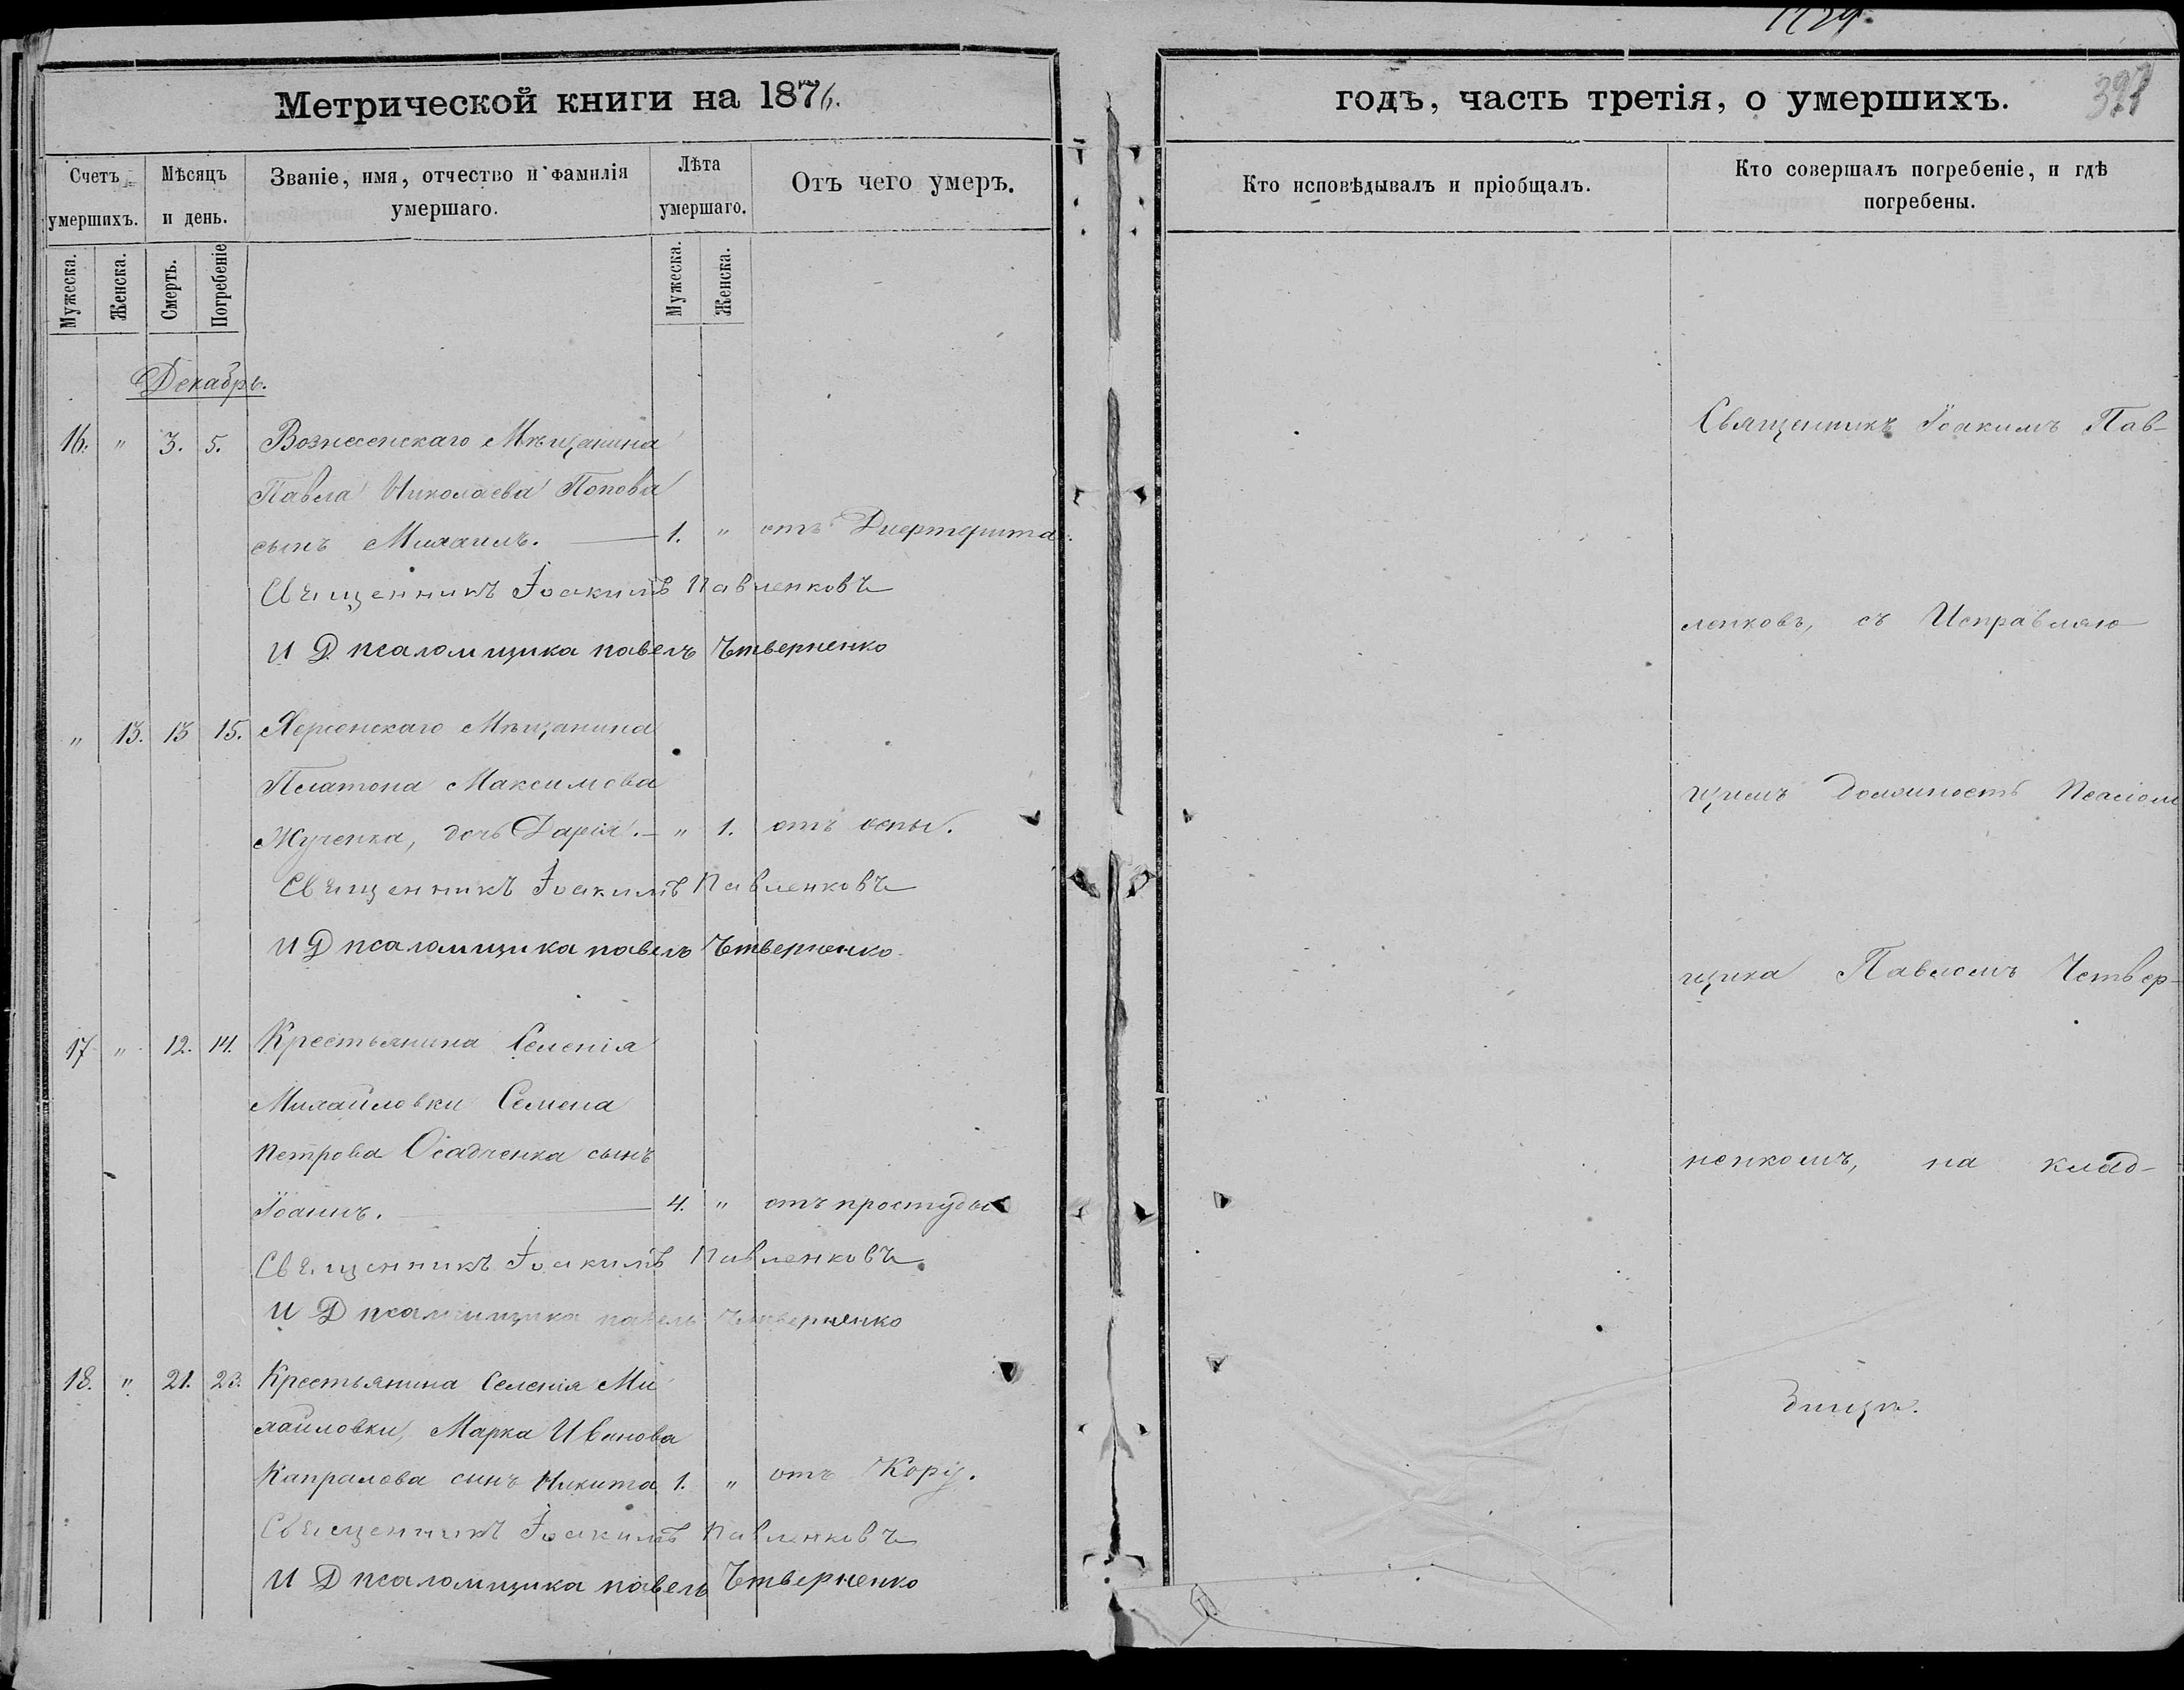 Метрической книги на 1876.
годъ, часть третія, о умершихъ.
Счетъ умершихъ.
Мѣсяцъ и день.
Званіе, имя, отчество и фамилія умершаго.
Лѣта умершаго.
Отъ чего умеръ.
Кто исповѣдывалъ и пріобщалъ.
Кто совершалъ погребеніе, и гдѣ погребены.
Мужеска.
Женска.
Смерть.
Погребеніе
Мужеска.
Женска.
Декабрь.
16. " 3. 5. Вознесенскаго Мѣщанина
Павла Николаева Попова
сынъ Михаилъ. — 1. " отъ Дифтерита.
Священникъ Іоакимъ Павленковъ
И Д псаломщика павелъ Четверненко
" 13. 13 15. Херсонскаго Мѣщанина
Платона Максимова
Жученка, дочь Дарія. — " 1. отъ оспы.
Священникъ Іоакимъ Павленковъ
И Д псаломщика павелъ Четверненко
17 " 12. 14. Крестьянина Селенія
Михайловки Семена
Петрова Осадченка сынъ
Іоаннъ. — 4. " отъ простуды
Священникъ Іоакимъ Павленковъ
И Д псаломщика павелъ Четверненко
18. " 21. 23. Крестьянина Селенія Ми
хайловки, Марка Иванова
Капралова сынъ Никита 1. " отъ Кору.
Священникъ Іоакимъ Павленковъ
И Д псаломщика павелъ Четверненко
Священникъ Іоакимъ Пав-
ленковъ, съ Исправляю
щимъ должность Псалом
щика Павломъ Четвер-
ненкомъ, на клад-
бищѣ.